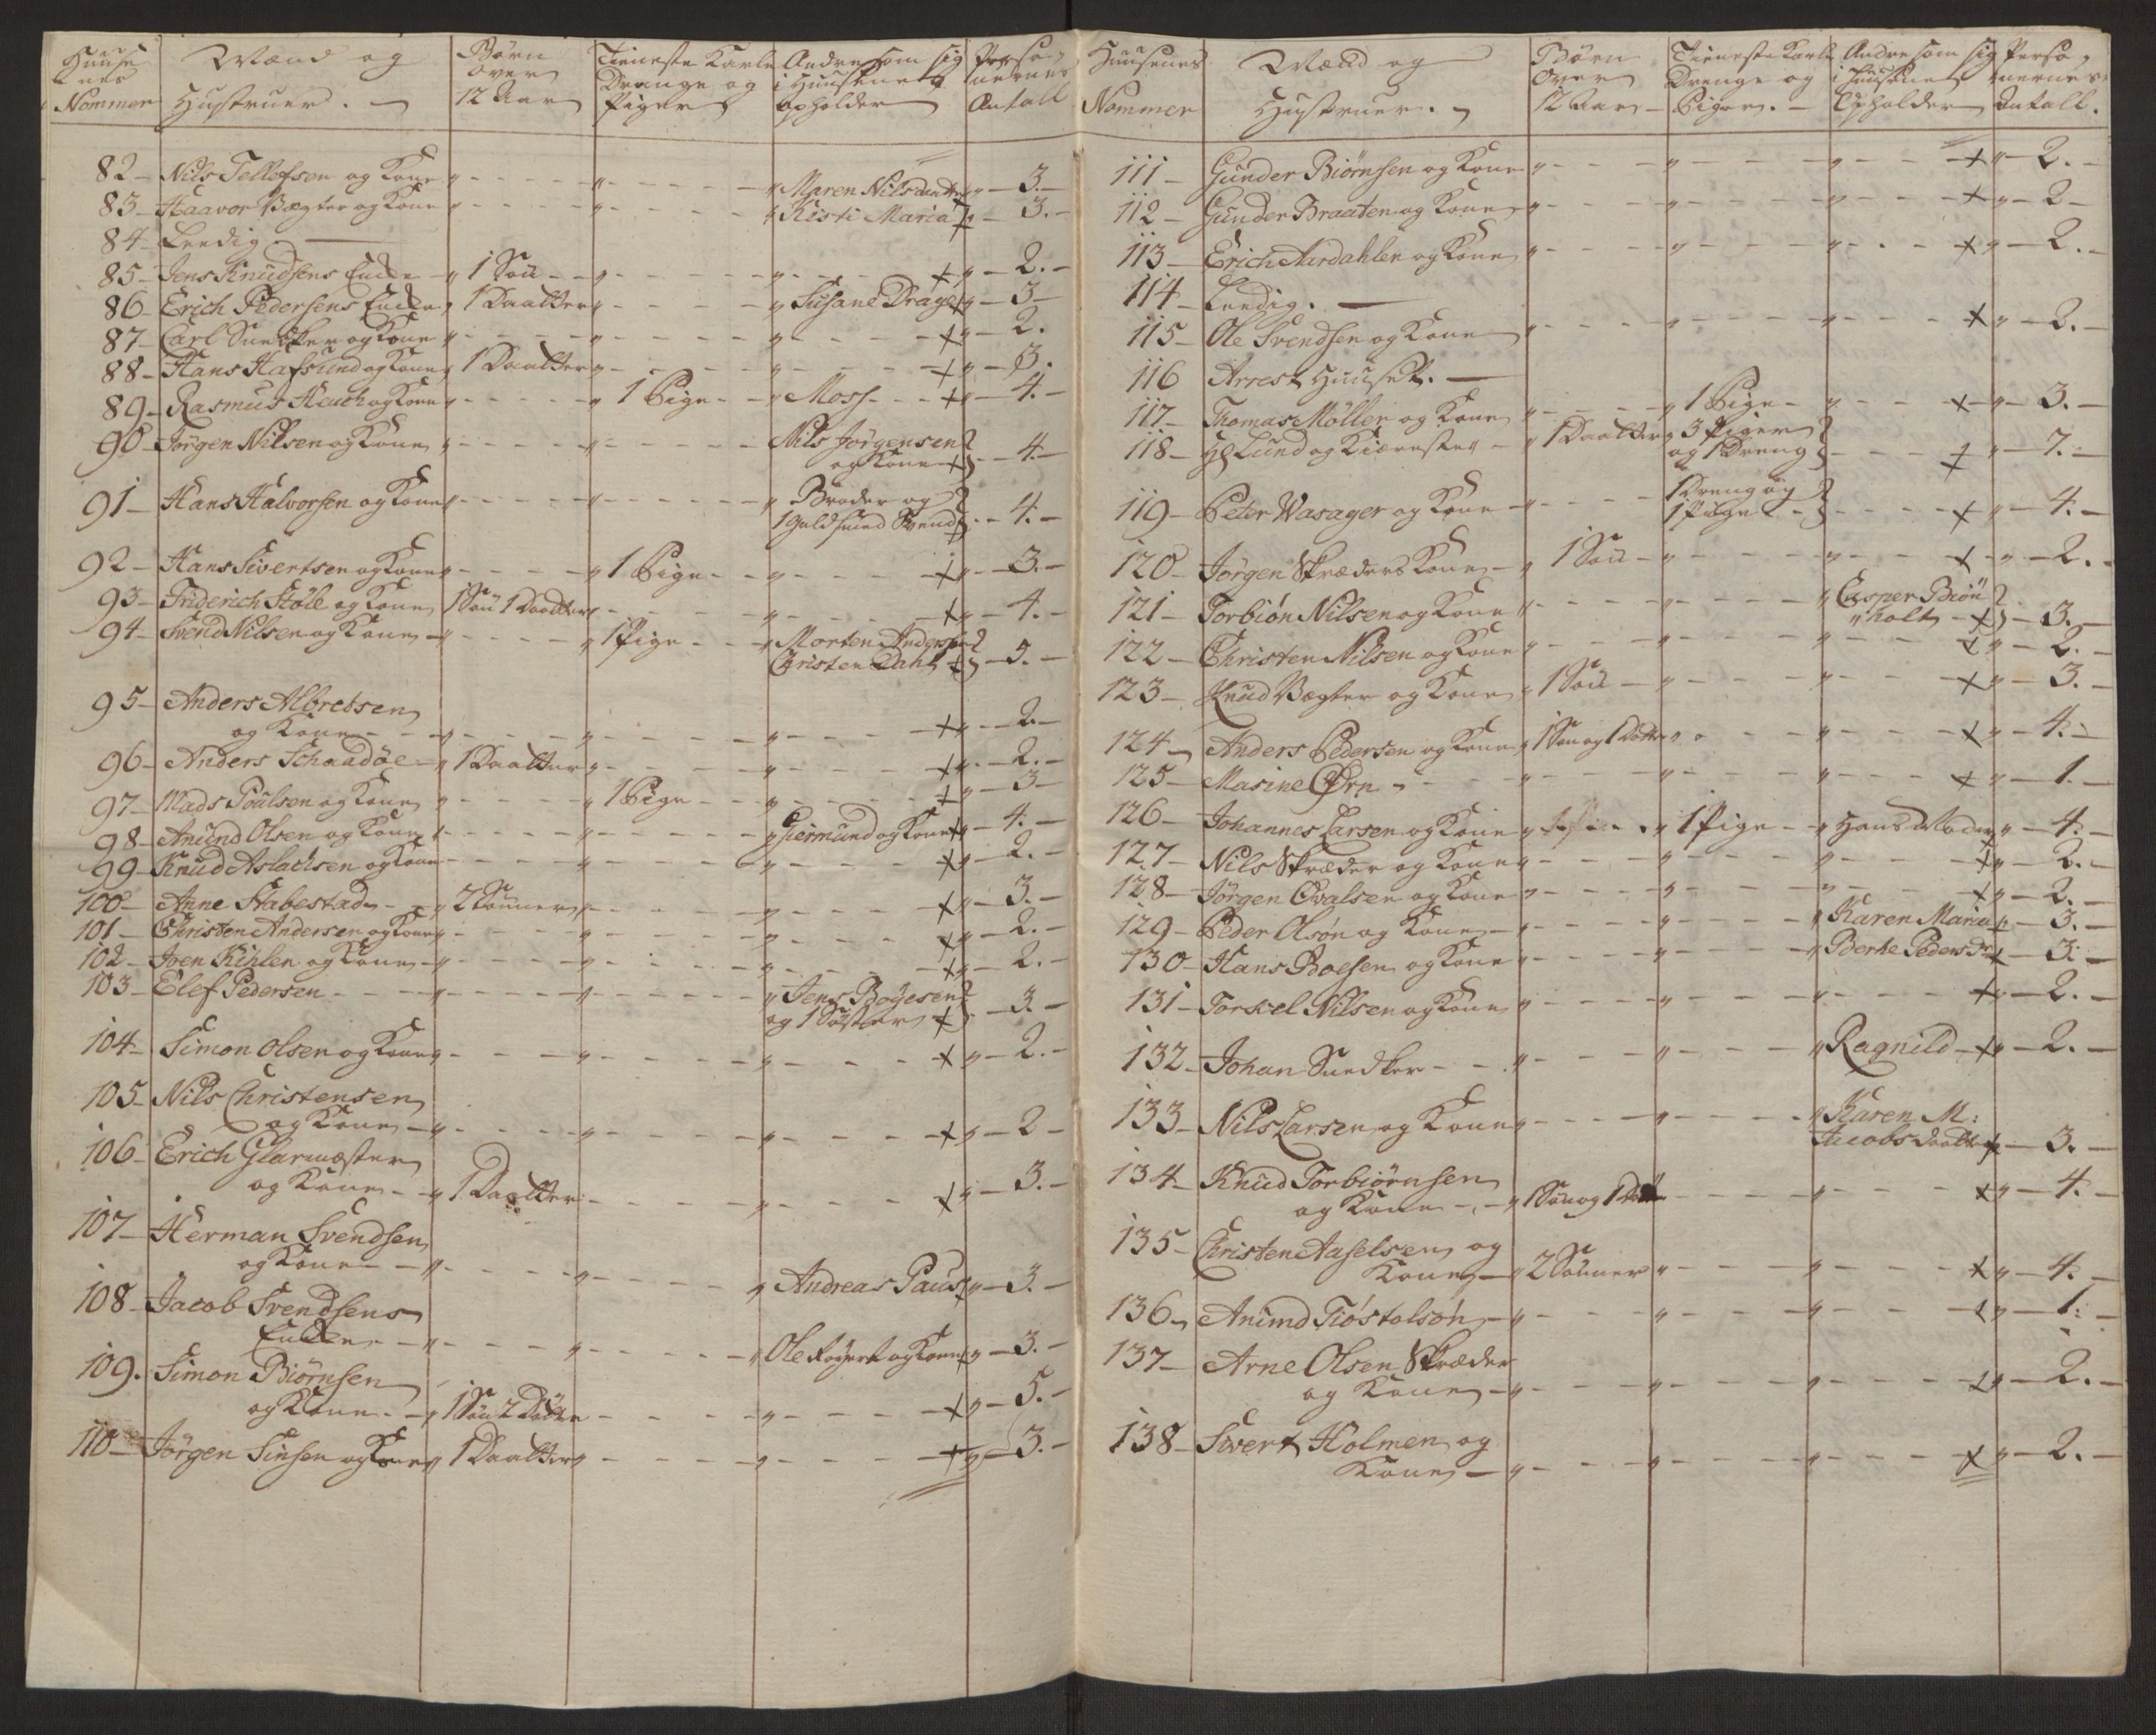 Huuse nes Nommer | Mænd og Hustruer. | Børn over 12 Aar | Tieneste Karle Drenge og Piger | Andre som sig i Huusene opholder | Perso, nernes Antall
82 – Nils Tellefsen og Kone " – – – " – – – " Maren Nilsdaatter " – 3. –
83 – Haavor Vægter og Kone " – – – " – – – " Kisti Maria + " – 3. –
84 – Leedig. –
85 – Jens Knudsens Encke – " 1 Søn – – " – – – " – – – + " – 2. –
86 – Erich Pedersens Encke " 1 Daatter " – – – " Susane Drage + " – 3 –
87 – Carl Snedker og Kone " – – – " – – – " – – – + " – 2.
88 – Hans Hafsund og Kone " 1 Daatter " – – – " – – – + " – 3.
89 – Rasmus Heuch og Kone " – – – " 1 Pige – – " Moss – – – + " – 4. –
90 – Jørgen Nilsen og Kone " – – – " – – – " Nils Jørgensen
og Kone + } – – 4. –
91 – Hans Halvorsen og Kone " – – – " – – – " Broder og
1 Guldsmed Svend + } – – 4. –
92 – Hans Sivertsen og Kone " – – – " 1 Pige – – " – – – + " – 3. –
93 – Friderich Støle og Kone 1 Søn 1 Daatter " – – – " – – – + " – 4. –
94 – Svend Nilsen og Kone – " – – – " 1 Pige – – " Morten Andersen
Christen Dahl + } – 5. –
95 – Anders Albretsen
og Kone – – " – – – " – – – " – – – + " – 2. –
96 – Anders Schaadøe – " 1 Daatter " – – – " – – – + " – 2. –
97 – Mads Poulsen og Kone " – – – " 1 Pige – – " – – – + " – 3 –
98 – Anund Olsen og Kone " – – – " – – – " Giermund og Kone + " – 4. –
99 – Knud Aslachsen og Kone – – – " – – – " – – – + " – 2. –
100 – Anne Stabestad – – " 2 Sønner " – – – " – – – + " – 3. –
101 – Christen Andersen og Kone " – – – " – – – " – – – + " – 2. –
102 – Iven Kihlen og Kone – " – – – " – – – " – – – + " – 2. –
103 – Elef Pedersen – – – " – – – " – – – " Jens Boyesen
og 1 Søster + } – 3. –
104 – Simon Olsen og Kone " – – – " – – – " – – – + " – 2. –
105 – Nils Christensen
og Kone – " – – – " – – – " – – – + " – 2 –
106 – Erich Glarmæster
og Kone – – " 1 Daatter – – – " – – – + " – 3. –
107 – Herman Svendsen
og Kone – – " – – – " – – – " Andreas Paus + " – 3. –
108 – Jacob Svendsens
Encke – – " – – – " – – – " Ole Røyert og Kone + " – 3. –
109. Simon Biørnsen
og Kone. – " 1 Søn 2 Døttre – – – " – – – + " – 5. –
110 – Jørgen Sinsen og Kone " 1 Daatter " – – – " – – – + " – 3. –
Huusenes Nommer | Mænd og Hustruer. | Børn over 12 Aar – | Tieneste Karle Drenge og Piger. – | Andre som sig i Huusene Opholder | Perso, nernes Antall.
111 – Gunder Biørnsen og Kone " – – – " – – – " – – – + " – 2. –
112 – Gunder Braaten og Kone " – – – " – – – " – – – + " – 2 –
113 – Erich Aardahlen og Kone " – – – " – – – " – – – + " – 2. –
114 – Leedig. –
115 – Ole Svendsen og Kone " – – – " – – – " – – – + " – 2. –
116 Arrest Huuset. –
117 – Thomas Møller og Kone " – – – " 1 Pige – " – – – + " – 3. –
118 – H Lund og Kiæreste " – " 1 Daatter " 3 Piger
og 1 Dreng } – – – + " – 7. –
119 – Peter Wasager og Kone – " – – – 1 Dreng og
1 Pige – } – – – + " – 4. –
120 – Jørgen Skræders Kone – " 1 Søn – " – – – " – – – + " – 2. –
121 – Torbiøn Nilsen og Kone " – – – " – – – " Casper Biøn
" holt – + } – 3. –
122 – Christen Nilsen og Kone " – – – " – – – " – – – + " – 2. –
123 – Knud Vægter og Kone " 1 Søn – " – – – " – – – + " – 3. –
124 – Anders Pedersen og Kone " 1 Søn og 1 Datter " – – – " – – – + " – 4. –
125 – Masine Ørn – – " – – – " – – – " – – – + " – 1. –
126 – Johannes Larsen og Kone " " 1 Pige – " Hans Moder " – 4. –
127 – Nils Skræder og Kone " – – – " – – – " – – – + " – 2. –
128 – Jørgen Qvalsen og Kone " – – – " – – – " – – – + " – 2. –
129 – Peder Olsøn og Kone – " – – – " – – – " Karen Maria + – 3. –
130 – Hans Boesen og Kone " – – – " – – – " Berte Peders Dr + – 3. –
131 – Torkel Nilsen og Kone " – – – " – – – " – – – + " – 2. –
132 – Johan Snedker – – " – – – " – – – " Ragnild – + " – 2. –
133 – Nils Larsen og Kone " – – – " – – – " Karen M:
Jacobs Daatter + – 3. –
134 – Knud Torbiørnsen
og Kone – – " 1 Søn og 1 Datter – – – " – – – + " – 4. –
135 – Christen Axelsen og
Kone – " 2 Sønner " – – – " – – – + " – 4. –
136 – Anund Tiøstolsøn – " – – – " – – – " – – – + " – 1. –
137 – Arne Olsen Skræder
og Kone – " – – – " – – – " – – – + " – 2. –
138 – Sivert Holmen og
Kone – " – – – " – – – " – – – + " – 2. –